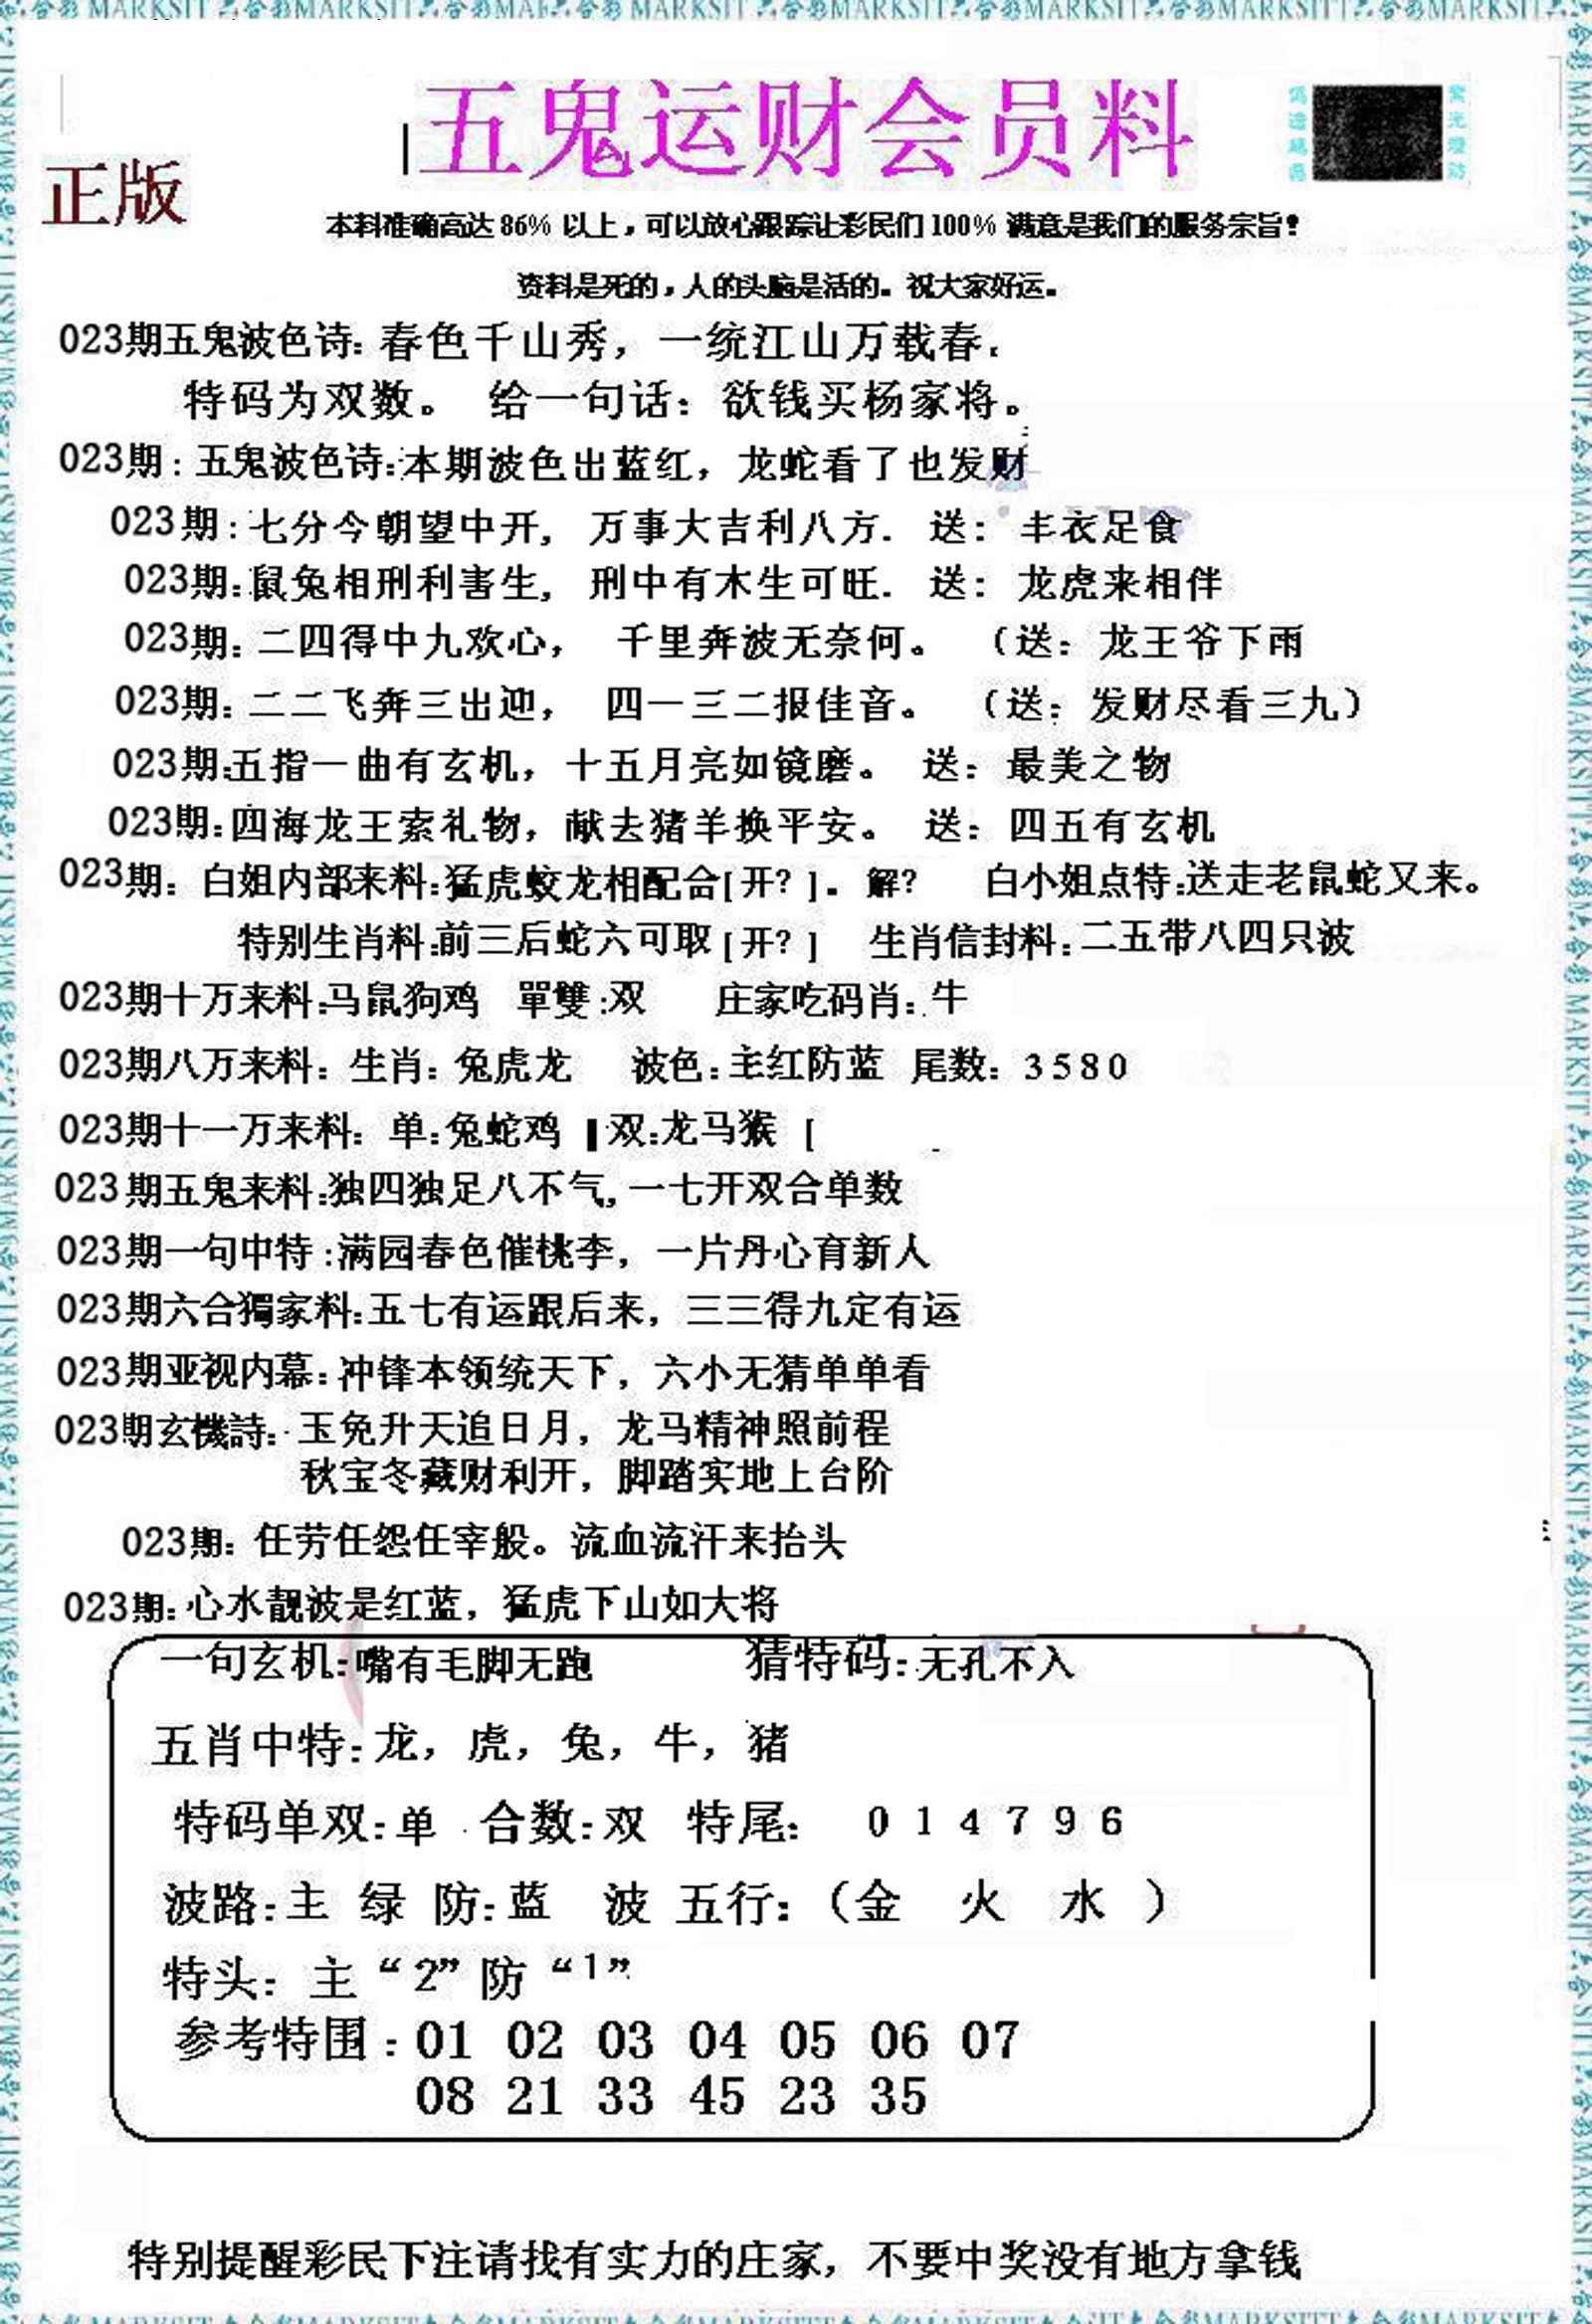 五鬼运财会员料
正版
本料准确高达86% 以上，可以放心跟踪让彩民们100% 满意是我们的服务宗旨！
资料是死的，人的头脑是活的。祝大家好运。
023期五鬼波色诗: 春色千山秀，一统江山万载春.
特码为双数。 给一句话：欲钱买杨家将。
023期: 五鬼波色诗:本期波色出蓝红，龙蛇看了也发财
023期:七分今朝望中开, 万事大吉利八方. 送: 丰衣足食
023期:鼠兔相刑利害生, 刑中有木生可旺. 送: 龙虎来相伴
023期: 二四得中九欢心， 千里奔波无奈何。 （送: 龙王爷下雨
023期: 二二飞奔三出迎， 四一三二报佳音。 （送: 发财尽看三九）
023期:五指一曲有玄机，十五月亮如镜磨。 送: 最美之物
023期:四海龙王索礼物，献去猪羊换平安。 送: 四五有玄机
023期: 白姐内部来料:猛虎蛟龙相配合[开？]. 解? 白小姐点特:送走老鼠蛇又来。
特别生肖料:前三后蛇六可取[开？] 生肖信封料:二五带八四只波
023期十万来料:马鼠狗鸡 單雙:双 庄家吃码肖: 牛
023期八万来料: 生肖: 兔虎龙 波色:主红防蓝 尾数: 3580
023期十一万来料: 单:兔蛇鸡 双:龙马猴 [
023期五鬼来料:独四独足八不气,一七开双合单数
023期一句中特:满园春色催桃李，一片丹心育新人
023期六合獨家料:五七有运跟后来，三三得九定有运
023期亚视内幕:冲锋本领统天下，六小无猜单单看
023期玄機詩: 玉兔升天追日月，龙马精神照前程
秋宝冬藏财利开，脚踏实地上台阶
023期: 任劳任怨任宰般。流血流汗来抬头
023期:心水靓波是红蓝，猛虎下山如大将
一句玄机:嘴有毛脚无跑 猜特码:无孔不入
五肖中特:龙，虎，兔，牛，猪
特码单双:单 合数:双 特尾: 0 1 4 7 9 6
波路:主 绿 防:蓝 波 五行:（金 火 水 ）
特头: 主“2”防“1”
参考特围:01 02 03 04 05 06 07
08 21 33 45 23 35
特别提醒彩民下注请找有实力的庄家，不要中奖没有地方拿钱